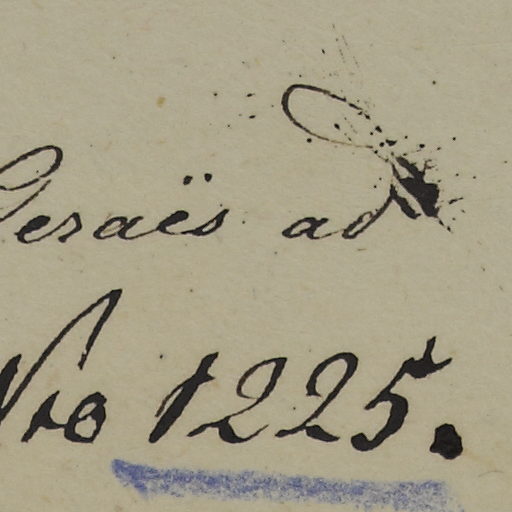 Geraës ad
Nro 1225.